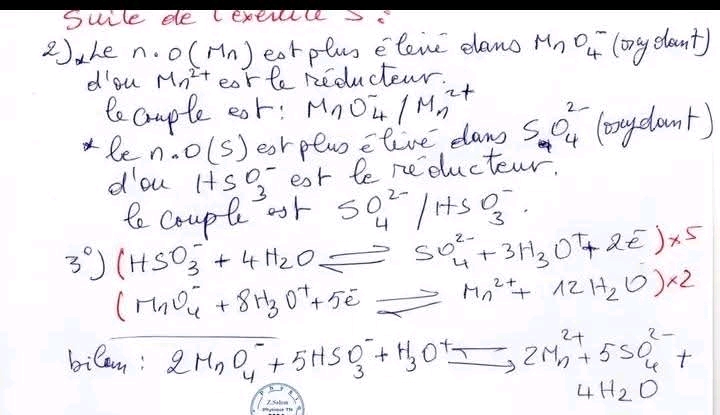 Suite de l'exercice 5 :
2) * Le n.O (Mn) est plus élevé dans MnO₄⁻ (oxydant)
d'où Mn²⁺ est le réducteur.
le couple est : MnO₄⁻ / Mn²⁺
* le n.O(S) est plus élivé dans SO₄²⁻ (oxydant)
d'où HSO₃⁻ est le réducteur.
le couple est SO₄²⁻ / HSO₃⁻.
3°) (HSO₃⁻ + 4H₂O ⇌ SO₄²⁻ + 3H₃O⁺ + 2ē ) x5
( MnO₄⁻ + 8H₃O⁺ + 5ē ⇌ Mn²⁺ + 12H₂O ) x2
bilan : 2MnO₄⁻ + 5HSO₃⁻ + H₃O⁺ ⇌ 2Mn²⁺ + 5SO₄²⁻ +
4H₂O